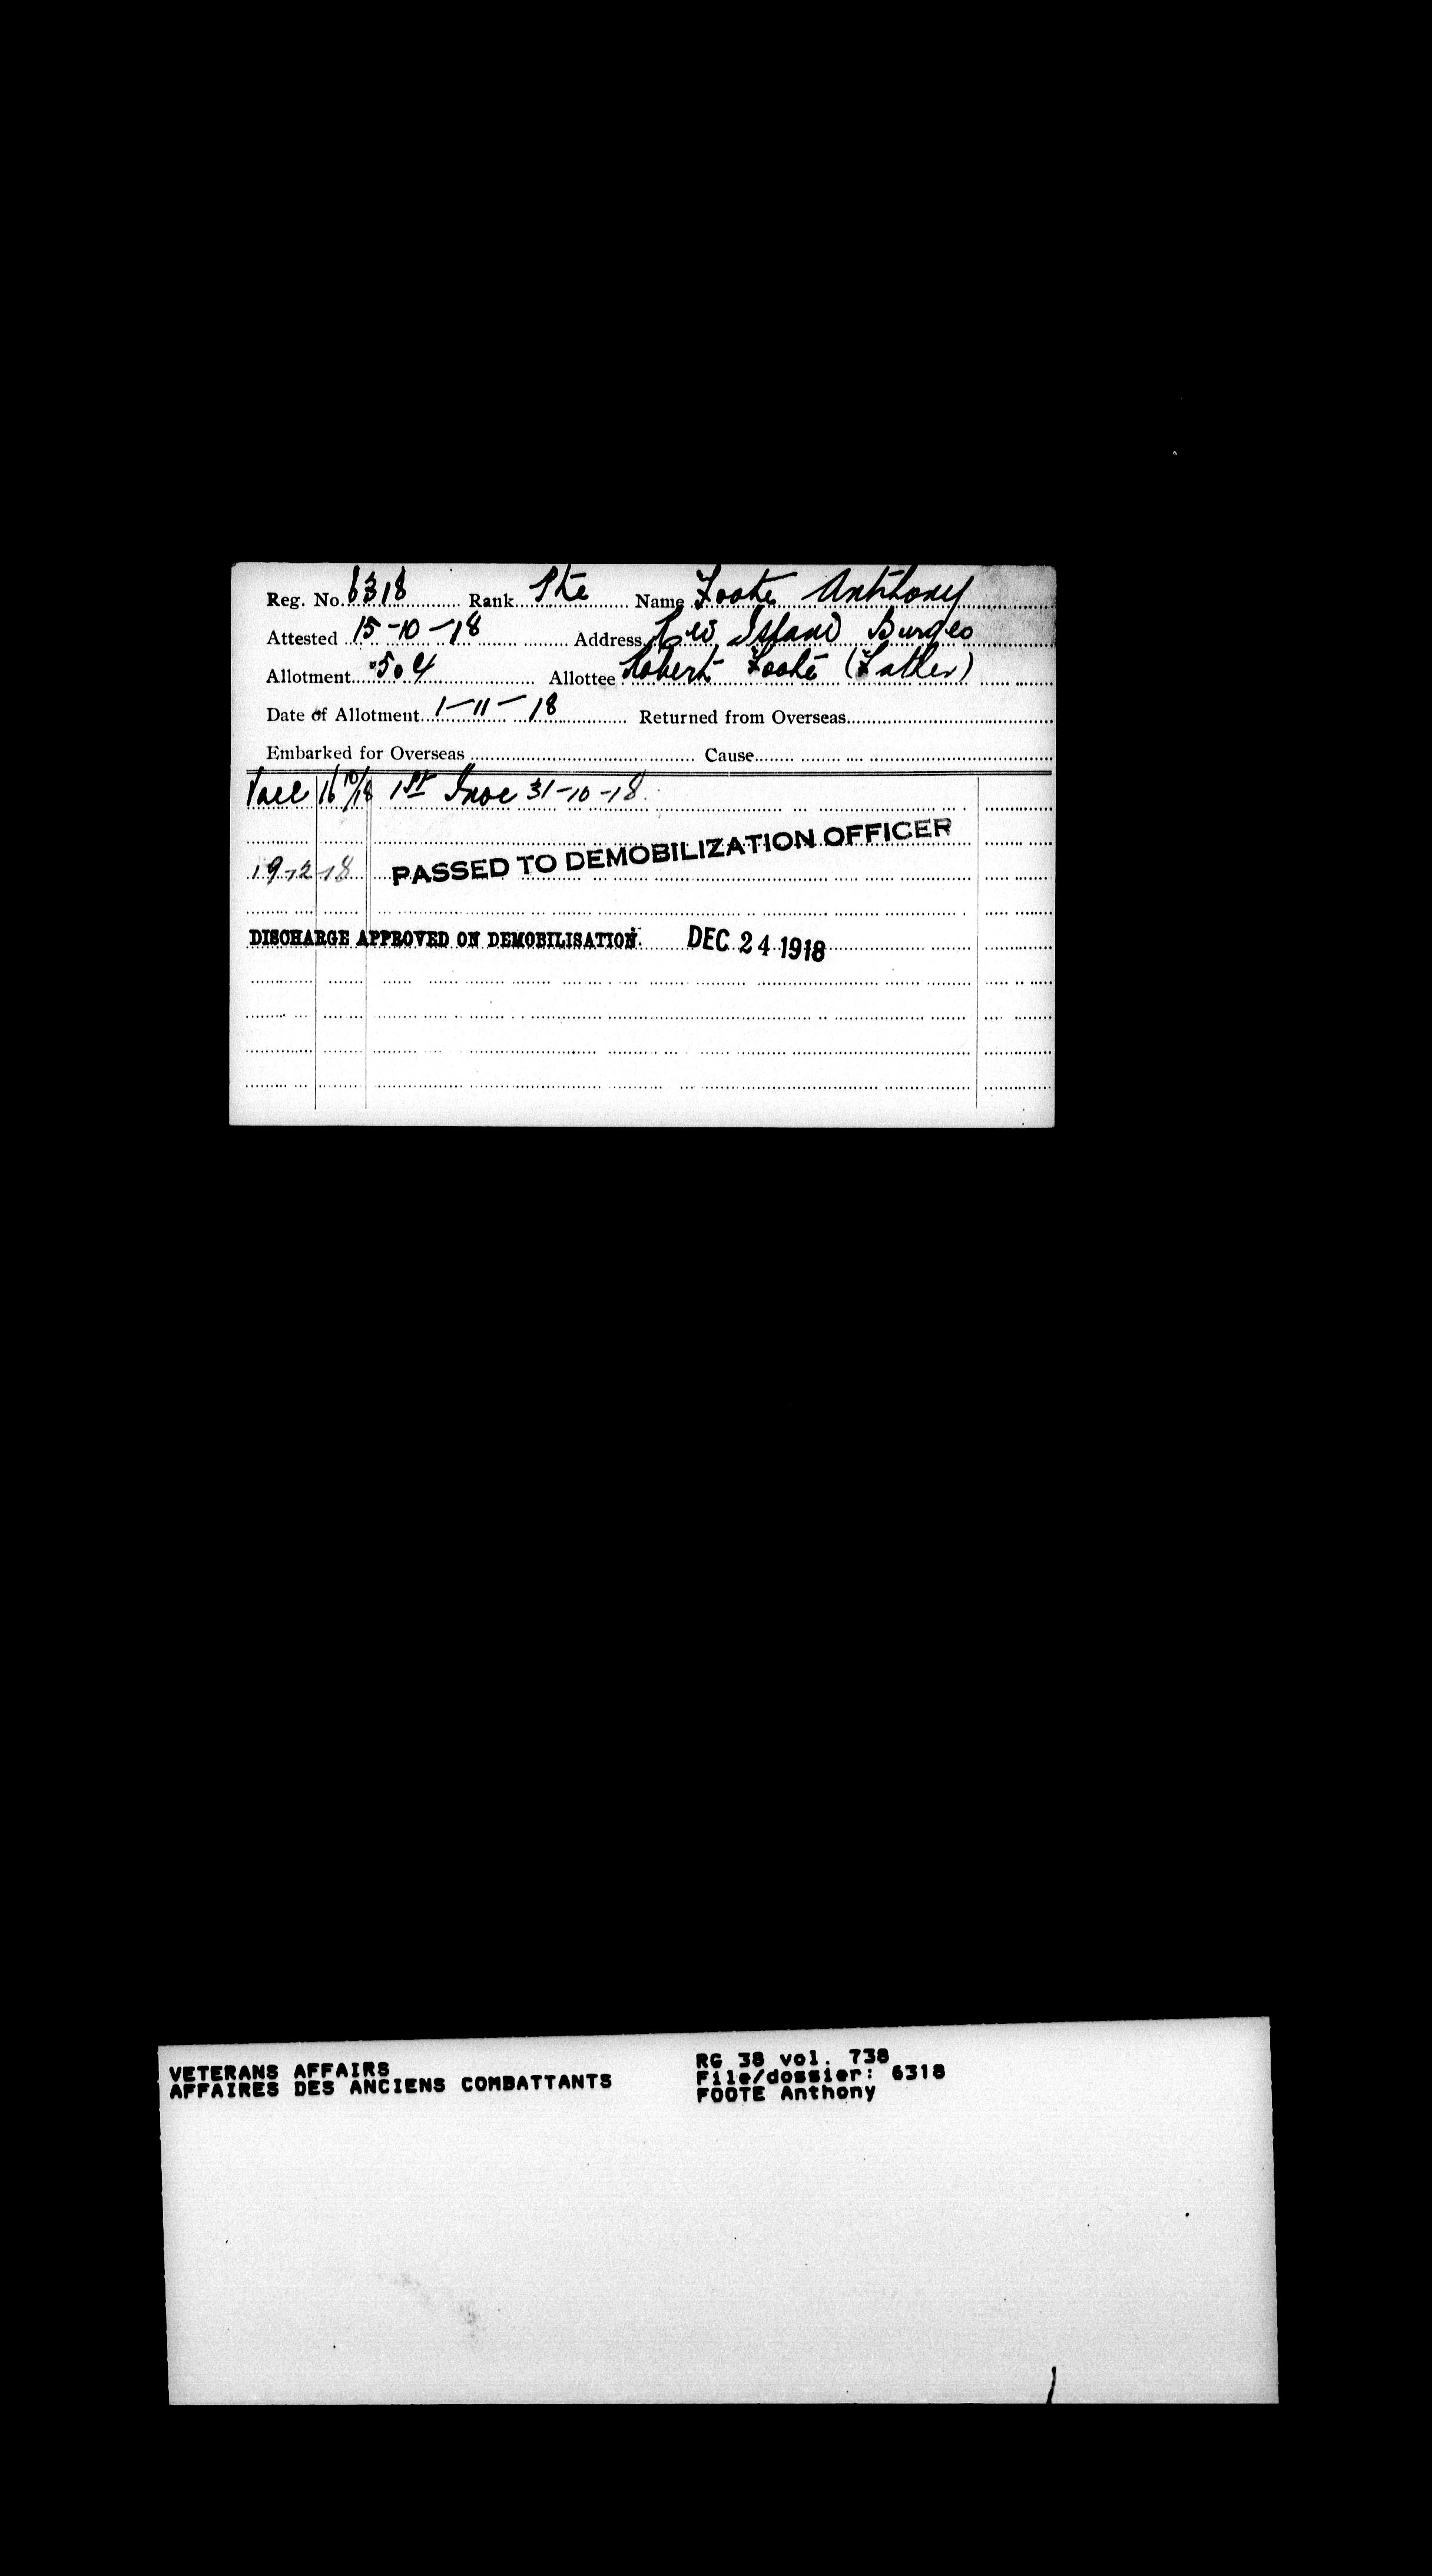 Reg. No. 6318 Rank Pte Name Foote Anthony
Attested 15-10-18 Address Red Island Burgeo
Allotment 50 ¢ Allottee Robert Foote (Father)
Date of Allotment 1-11-18 Returned from Overseas
Embarked for Overseas Cause
Vacc 16 10/18 1st Inoc 31-10-18
19-12-18 PASSED TO DEMOBILIZATION OFFICER
DISCHARGE APPROVED ON DEMOBILISATION. DEC 24 1918
VETERANS AFFAIRS RG 38 vol. 738
AFFAIRES DES ANCIENS COMBATTANTS File/dossier: 6318
FOOTE Anthony